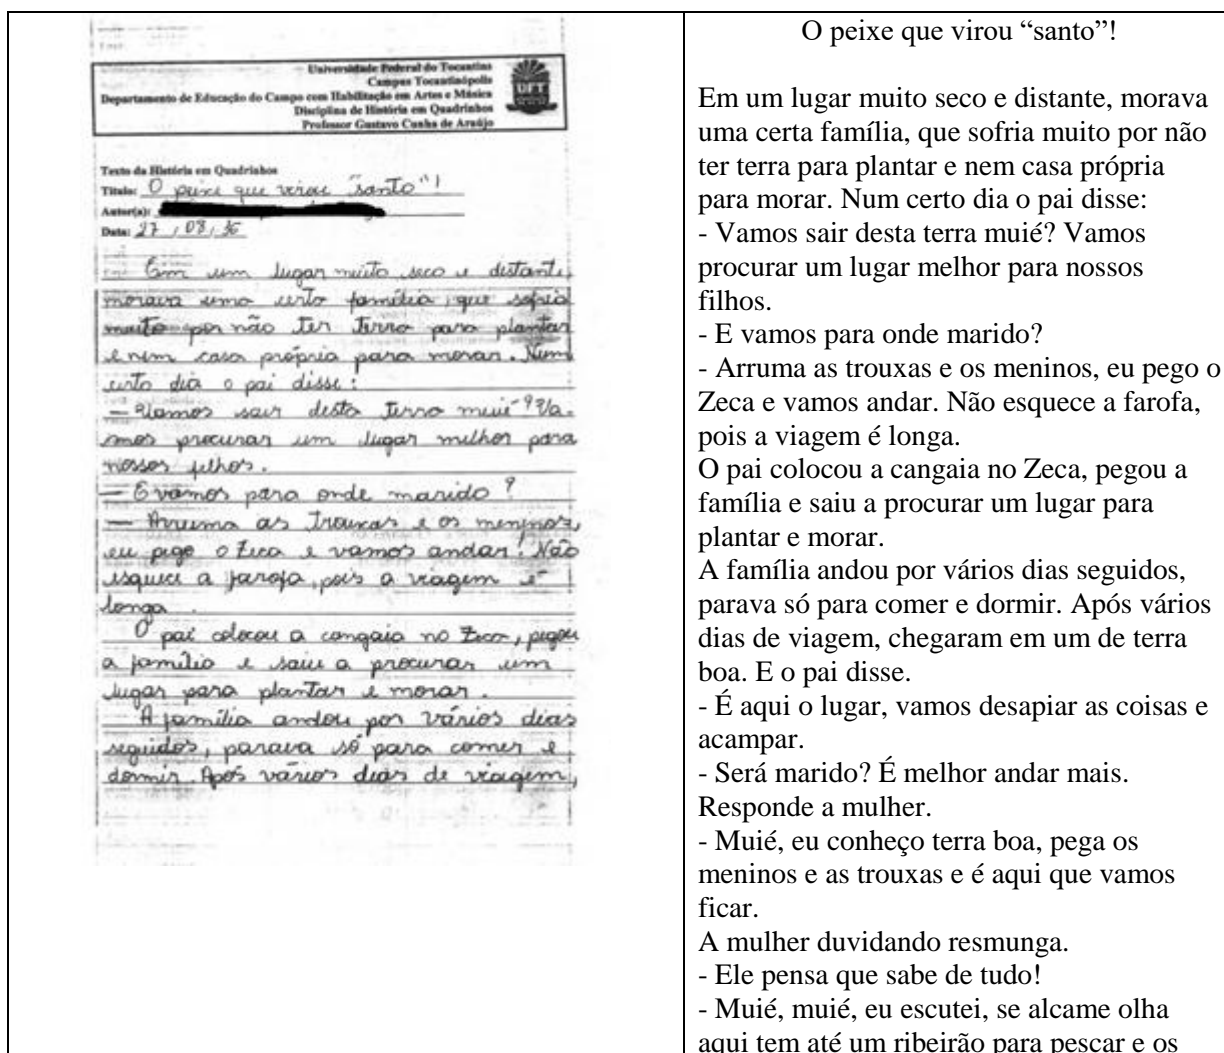 Universidade Federal do Tocantins
Campus Tocantinópolis
Departamento de Educação do Campo com Habilitação em Artes e Música
Disciplina de História em Quadrinhos
Professor Gustavo Cunha de Araújo
UFT
Texto da História em Quadrinhos
Título: O peixe que virou "santo"!
Autor(a):
Data: 27 / 08 / 
Em um lugar muito seco e distante,
morava uma certo família, que sofria
muito por não ter terra para plantar
e nem casa própria para morar. Num
certo dia o pai disse:
— Vamos sair desta terra muié? Va-
mos procurar um lugar melhor para
nossos filhos.
— E vamos para onde marido?
— Arruma as trouxas e os meninos,
eu pego o Zeca e vamos andar! Não
esquece a farofa, pois a viagem é
longa.
O pai colocou a cangaia no Zeca, pegou
a família e saiu a procurar um
lugar para plantar e morar.
A família andou por vários dias
seguidos, parava só para comer e
dormir. Após vários dias de viagem,
O peixe que virou “santo”!
Em um lugar muito seco e distante, morava
uma certa família, que sofria muito por não
ter terra para plantar e nem casa própria
para morar. Num certo dia o pai disse:
- Vamos sair desta terra muié? Vamos
procurar um lugar melhor para nossos
filhos.
- E vamos para onde marido?
- Arruma as trouxas e os meninos, eu pego o
Zeca e vamos andar. Não esquece a farofa,
pois a viagem é longa.
O pai colocou a cangaia no Zeca, pegou a
família e saiu a procurar um lugar para
plantar e morar.
A família andou por vários dias seguidos,
parava só para comer e dormir. Após vários
dias de viagem, chegaram em um de terra
boa. E o pai disse.
- É aqui o lugar, vamos desapiar as coisas e
acampar.
- Será marido? É melhor andar mais.
Responde a mulher.
- Muié, eu conheço terra boa, pega os
meninos e as trouxas e é aqui que vamos
ficar.
A mulher duvidando resmunga.
- Ele pensa que sabe de tudo!
- Muié, muié, eu escutei, se alcame olha
aqui tem até um ribeirão para pescar e os